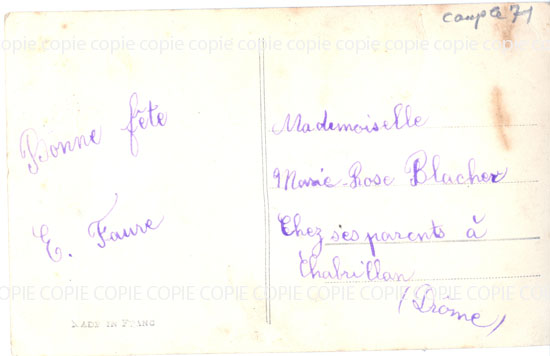 couple 71
COPIE COPIE COPIE COPIE COPIE COPIE COPIE COPIE COPIE
Bonne fête
E. Faure
Mademoiselle
Marie-Rose Blacher
Chez ses parents à
Chabrillan
(Drôme)
COPIE COPIE COPIE COPIE COPIE COPIE COPIE COPIE COPIE
MADE IN FRANC